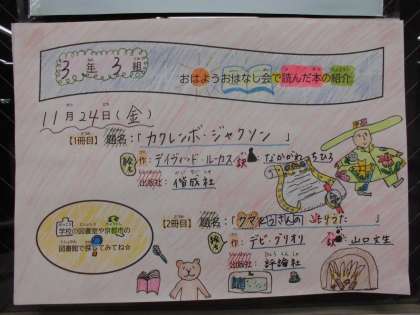 3年3組
おはようおはなし会で読んだ本の紹介
11月24日(金)
【1冊目】題名:「カクレンボ・ジャクソン」
絵 作:デイヴィッド・ルーカス 訳 なかがわちひろ
出版社:偕成社
【2冊目】題名:「クマくんの
絵 作:デビ・グリオリ 訳 山口文生
出版社:評論社
学校の図書室や京都市の
図書館で探してみてね☆